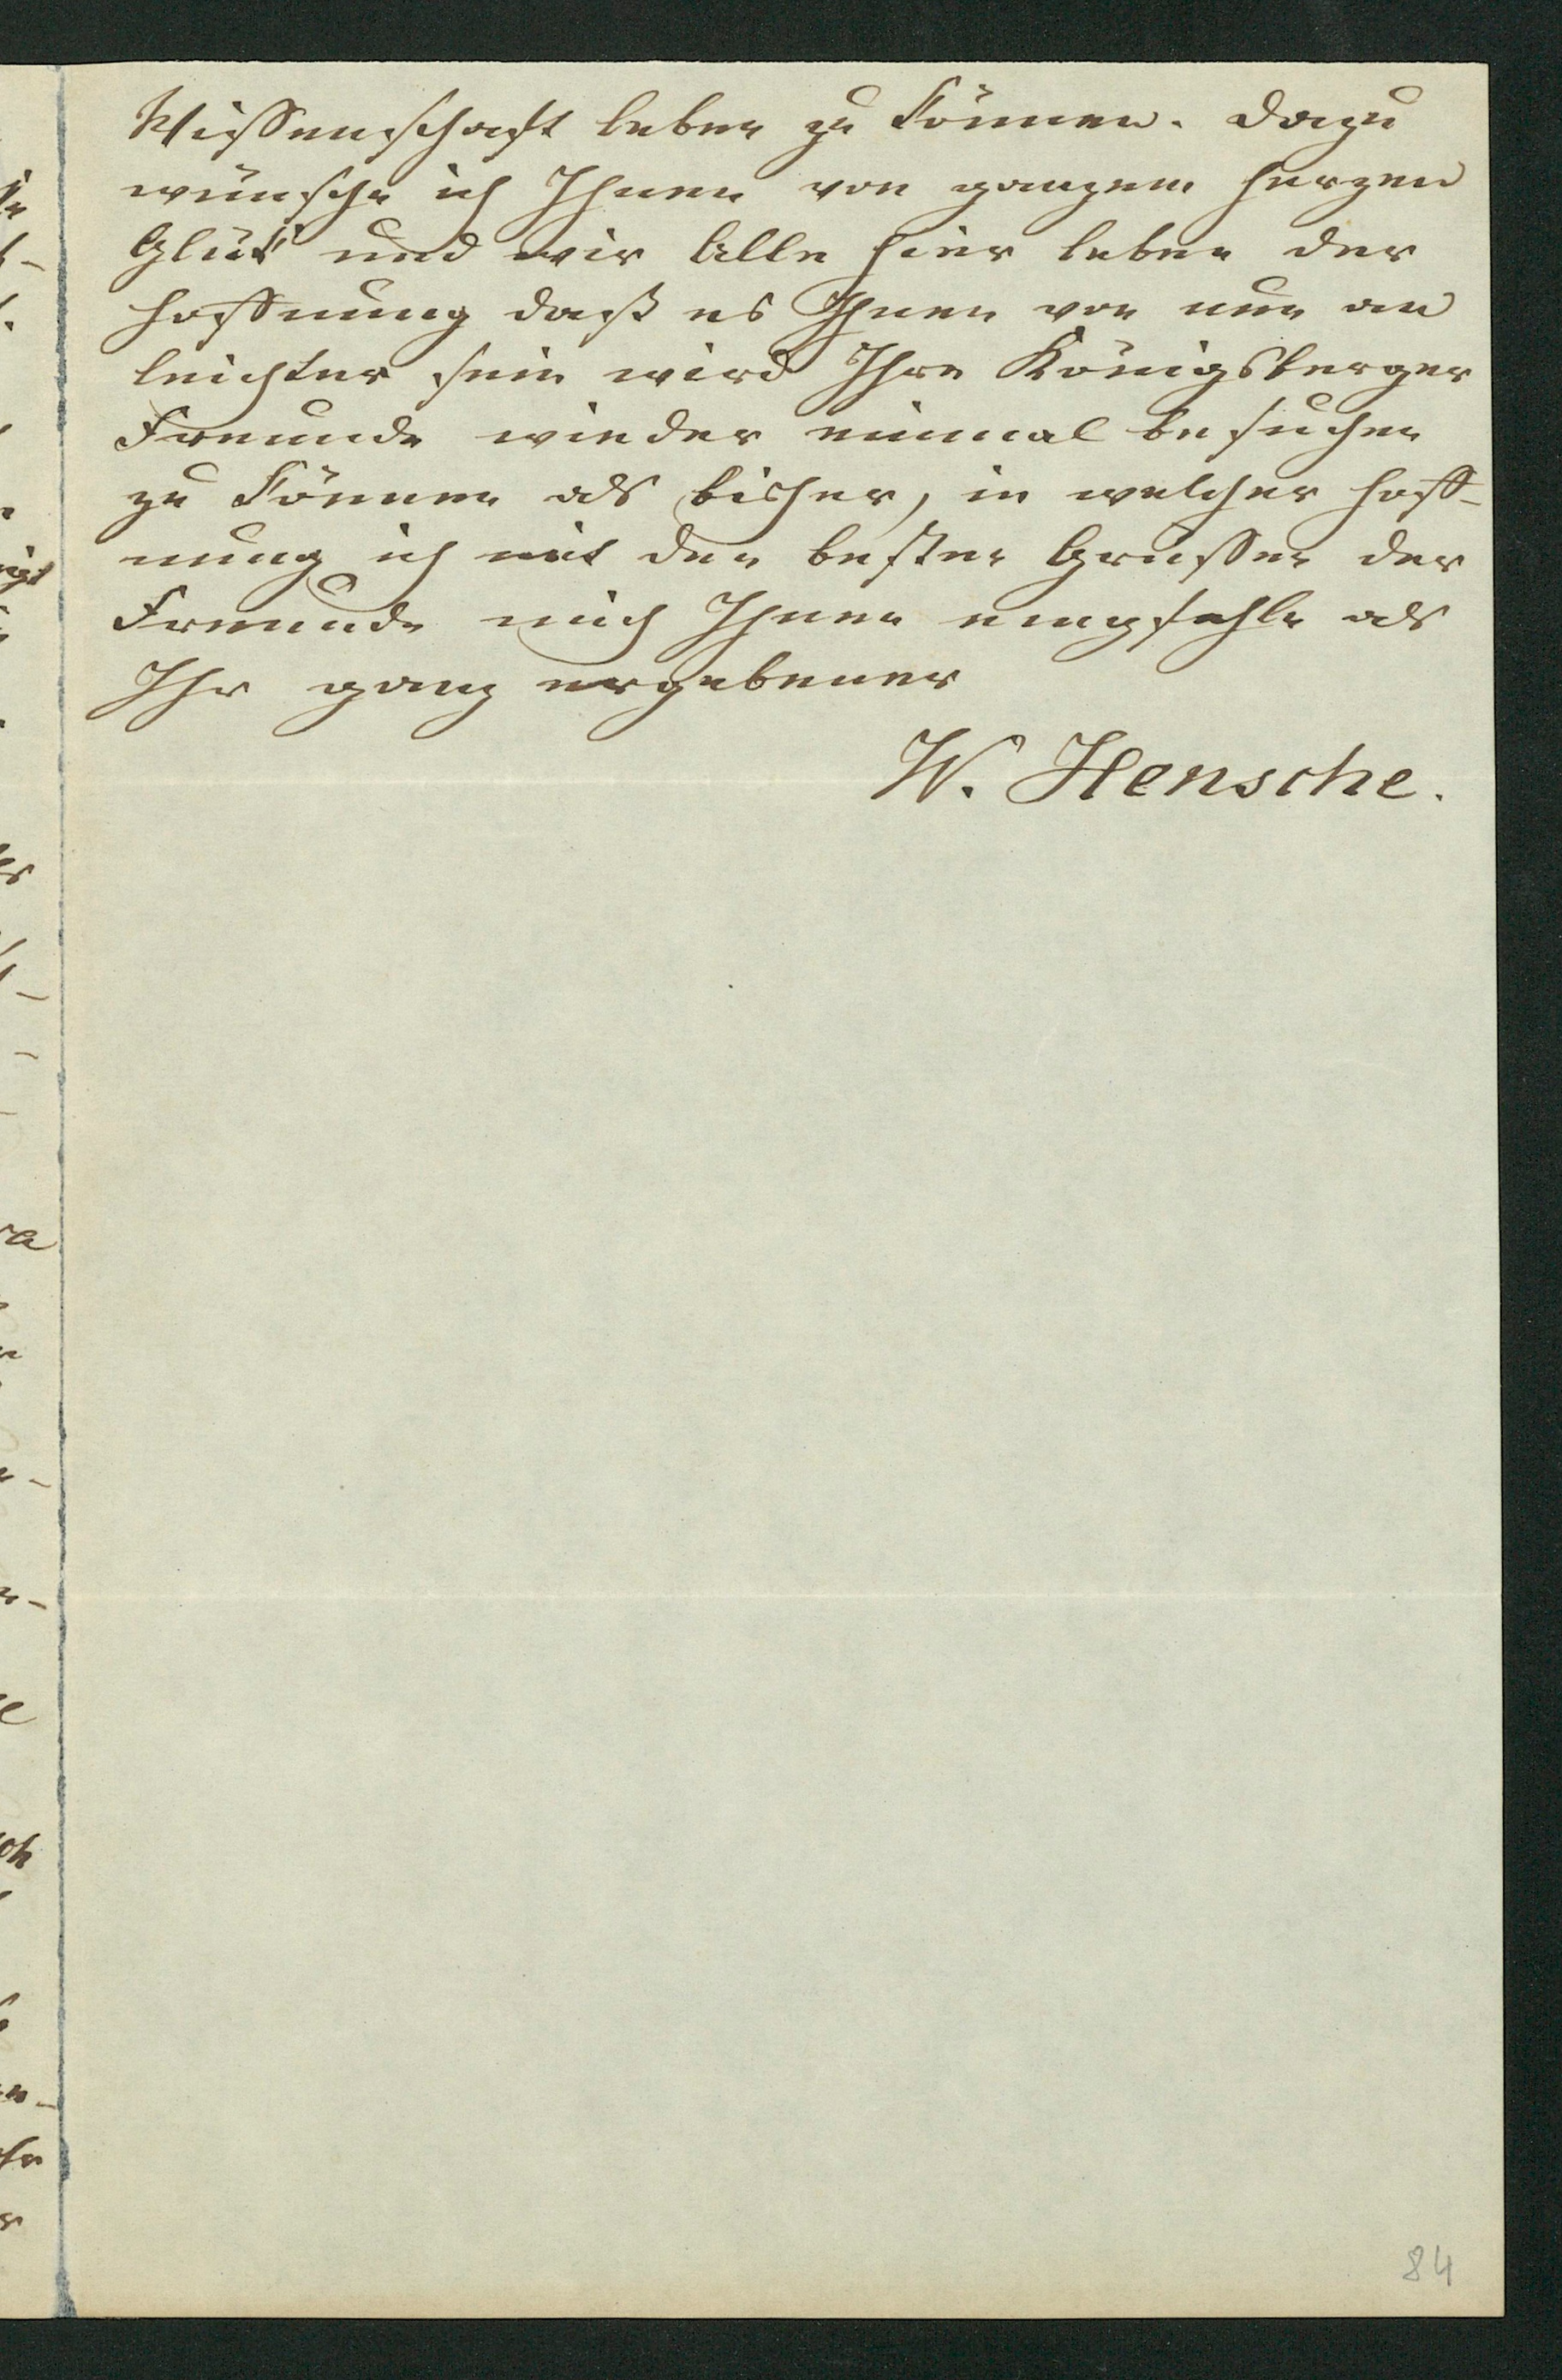 Wissenschaft leben zu können. Dazu
wünsche ich Ihnen von ganzem Herzen
Glück und wir Alle hier leben der
Hoffnung daß es Ihnen von nun an
leichter sein wird Ihre Königsberger
Freunde wieder einmal besuchen
zu können als bisher, in welcher Hoff-
nung ich mit den besten Grüssen der
Freunde mich Ihnen empfehle als
Ihr ganz ergebener
W. Hensche.
84